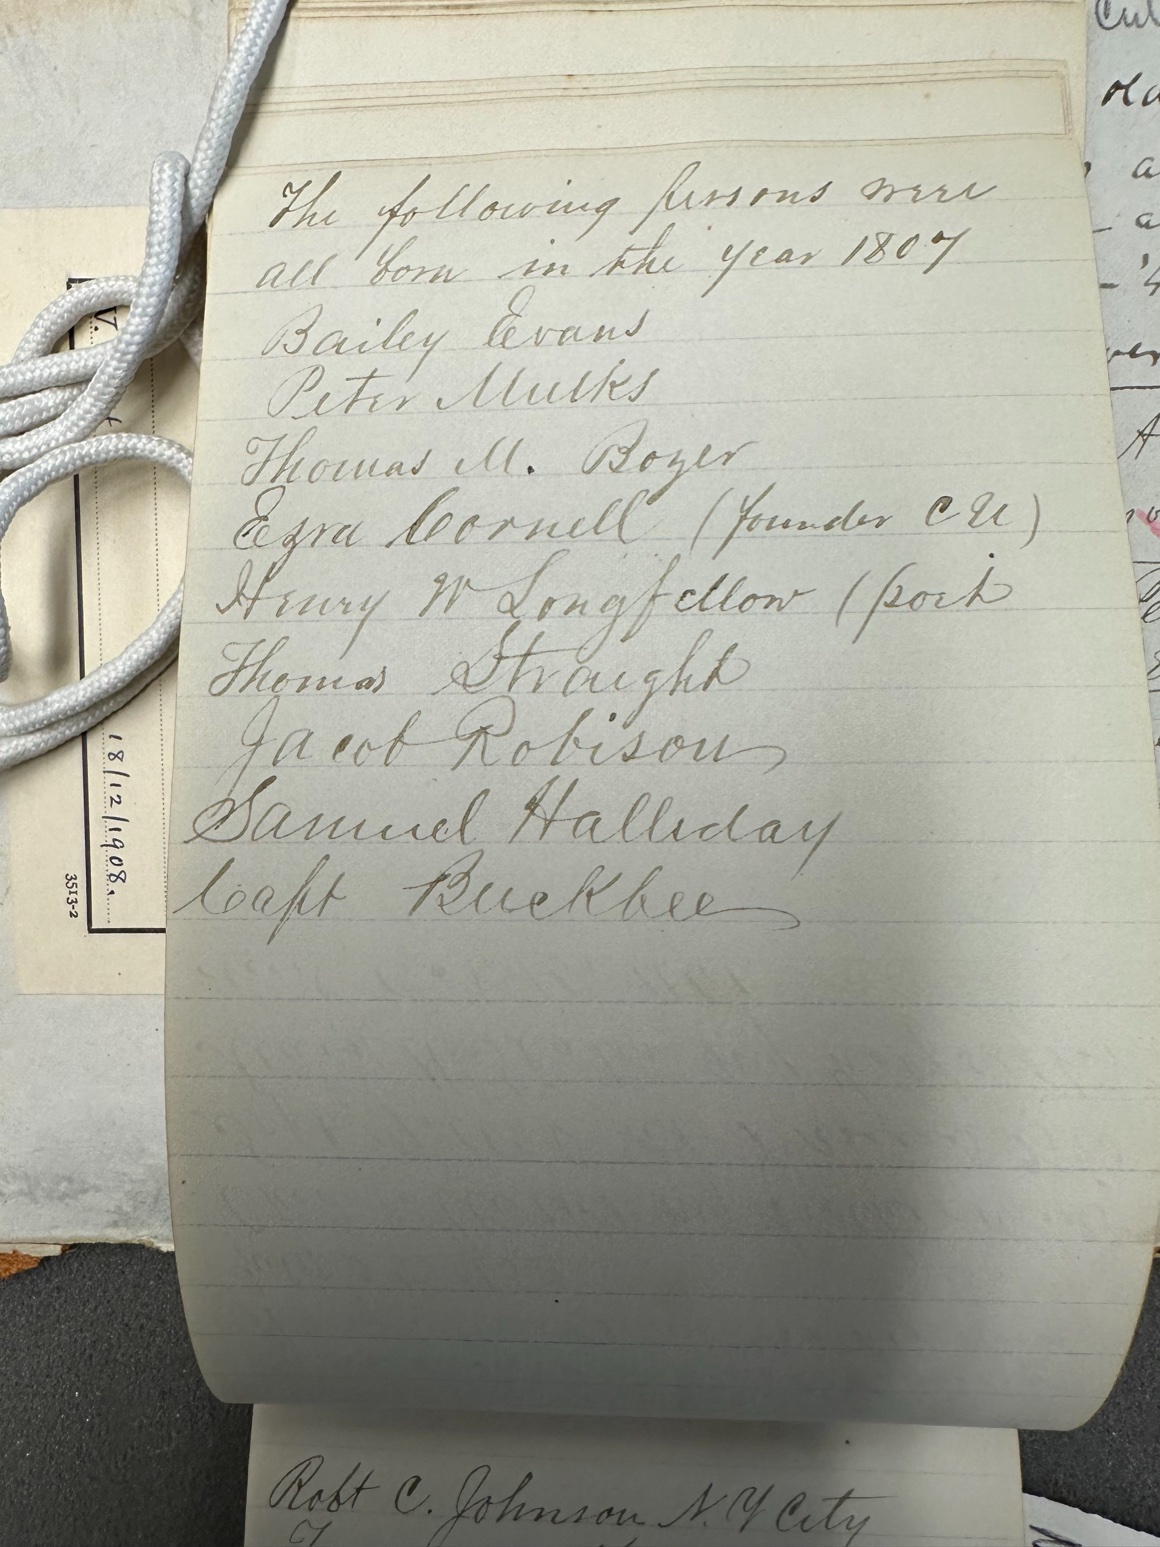 The following persons were
all born in the year 1807
Bailey Evans
Peter Mulks
Thomas M. Bozer
Ezra Cornell (founder C U)
Henry W Longfellow (poet
Thomas Straight
Jacob Robison
Samuel Halliday
Capt Buckbee
Robt C. Johnson N. Y City
18/12/1908.
3513-2